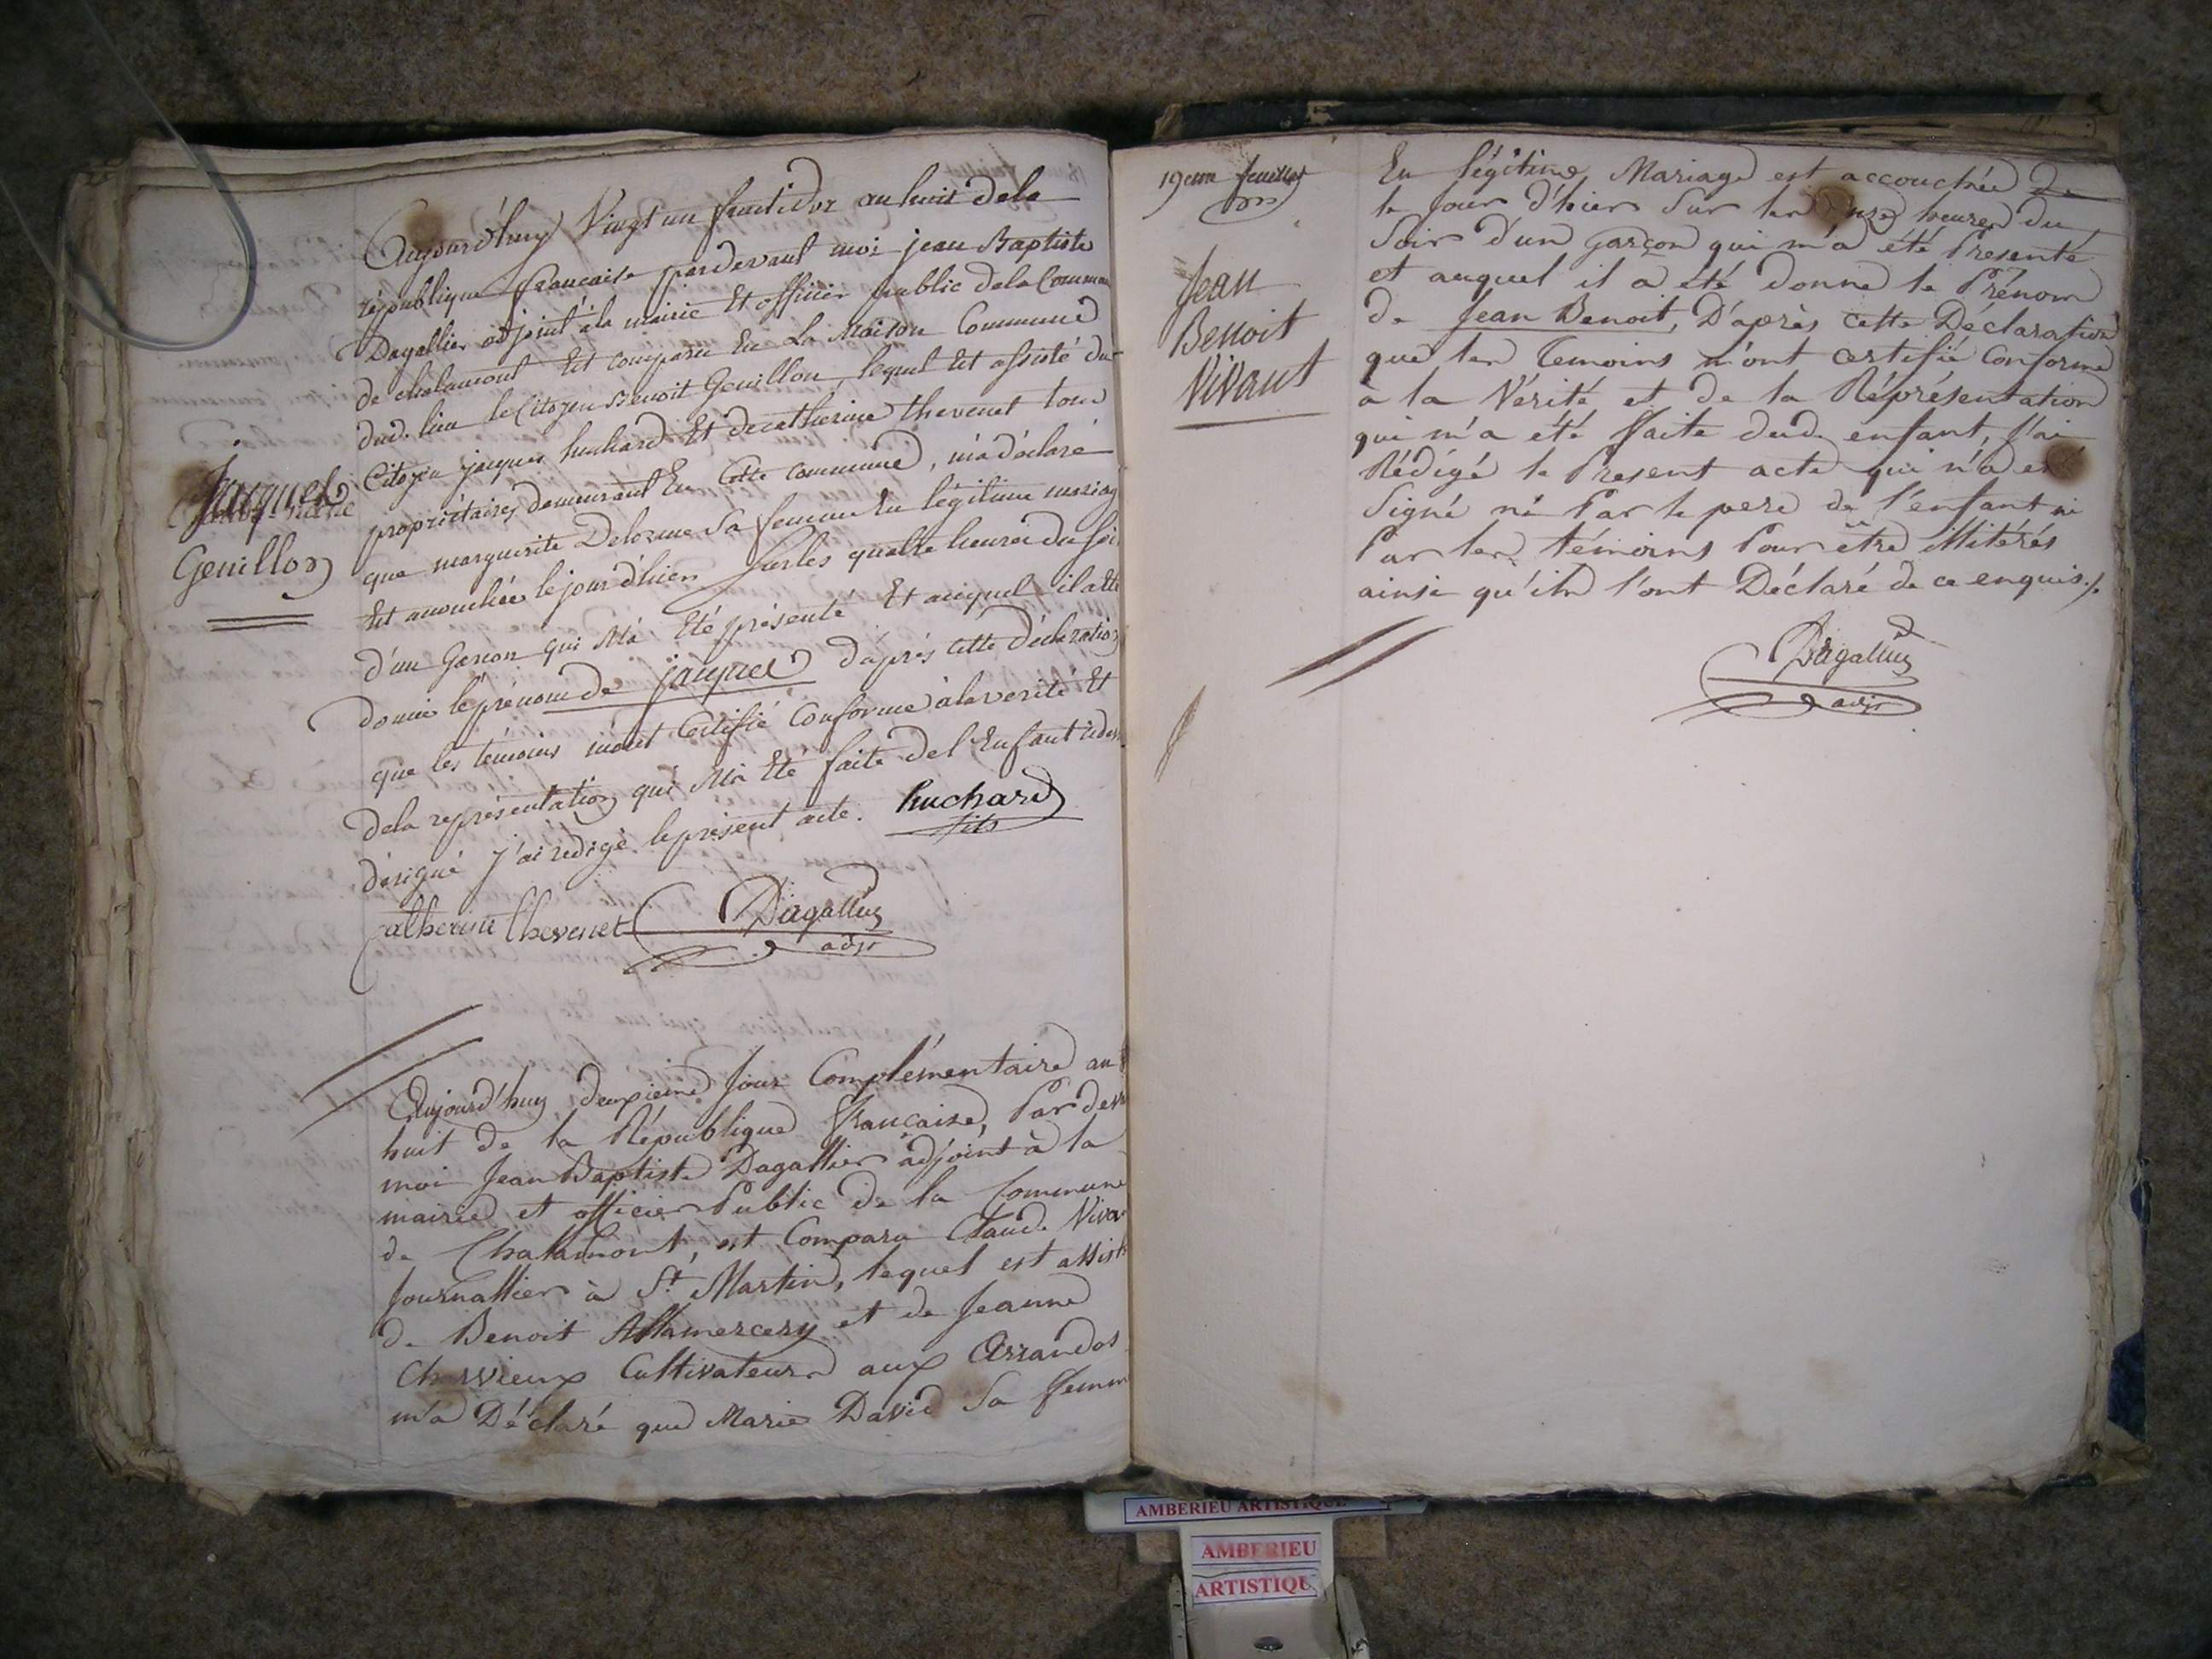 Aujourd'huy Vingt un fructidor an huit dela
republique francaise pardevant moi jean Baptiste
Dagallier adjoint àla mairie Et officier public dela Commune
de chalamont Est comparu En La Maison Commune
dud. lieu le Citoyen Benoit Genillon, lequel Est assisté du
Citoyen jacques huchard Et de catherine thevenet tous
propriétaires demeurant En Cette commune, m'a déclaré
que marguerite Delorme Sa femme En légitime mariag
Est accouchée le jour d'hier Sur les quatre heures du soi
d'un Garcon qui M'a Eté présenté Et auquel il a Eté
donné le prénom de jacques d'aprés cette déclaration
que les témoins m'ont Certifié Conforme àla verité Et
dela représentation qui M'a Eté faite del'Enfant cides
désigné j'ai redigé le présent acte. huchard
fils
Catherine thevenet Dagallier
adjt
Jacques
Genillon
Aujourd'huy deuxieme Jour Complémentaire an
huit de la République française, Par dev
moi Jean Baptiste Dagallier adjoint à la
mairie et officier Public de la Commune
de Chalamont, est Comparu Claude Viva
Journallier à St Martin, lequel est assist
de Benoit Allamercery et de Jeanne
Chervieux Cultivateurs aux Arrandos
m'a Déclaré que Marie David Sa femm
19eme feuillet
Jean
Benoit
Vivant
En légitime Mariage est accouchée de
le Jour d'hier Sur les onze heures du
Soir d'un garçon qui m'a été Presenté
et auquel il a été donné le Prénom
de Jean Benoit, D'après cette Déclaration
que les Temoins m'ont certifié Conforme
à la Vérité et de la Réprésentation
qui m'a été faite dud. enfant, J'ai
Rédigé le Present acte qui n'a été
Signé ni Par le pere de l'enfant ni
Par les témoins Pour être illitérés
ainsi qu'ils l'ont Déclaré de ce enquis./.
Dagallier
adjt
AMBERIEU ARTISTIQUE
AMBERIEU
ARTISTIQU